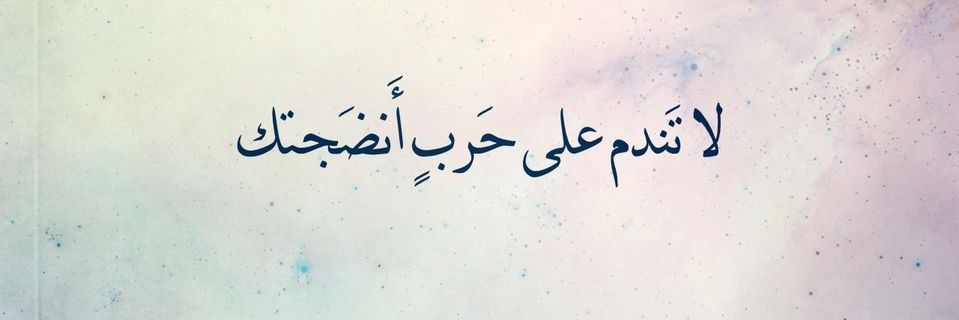 لا تَندم على حَربٍ أَنضَجتك